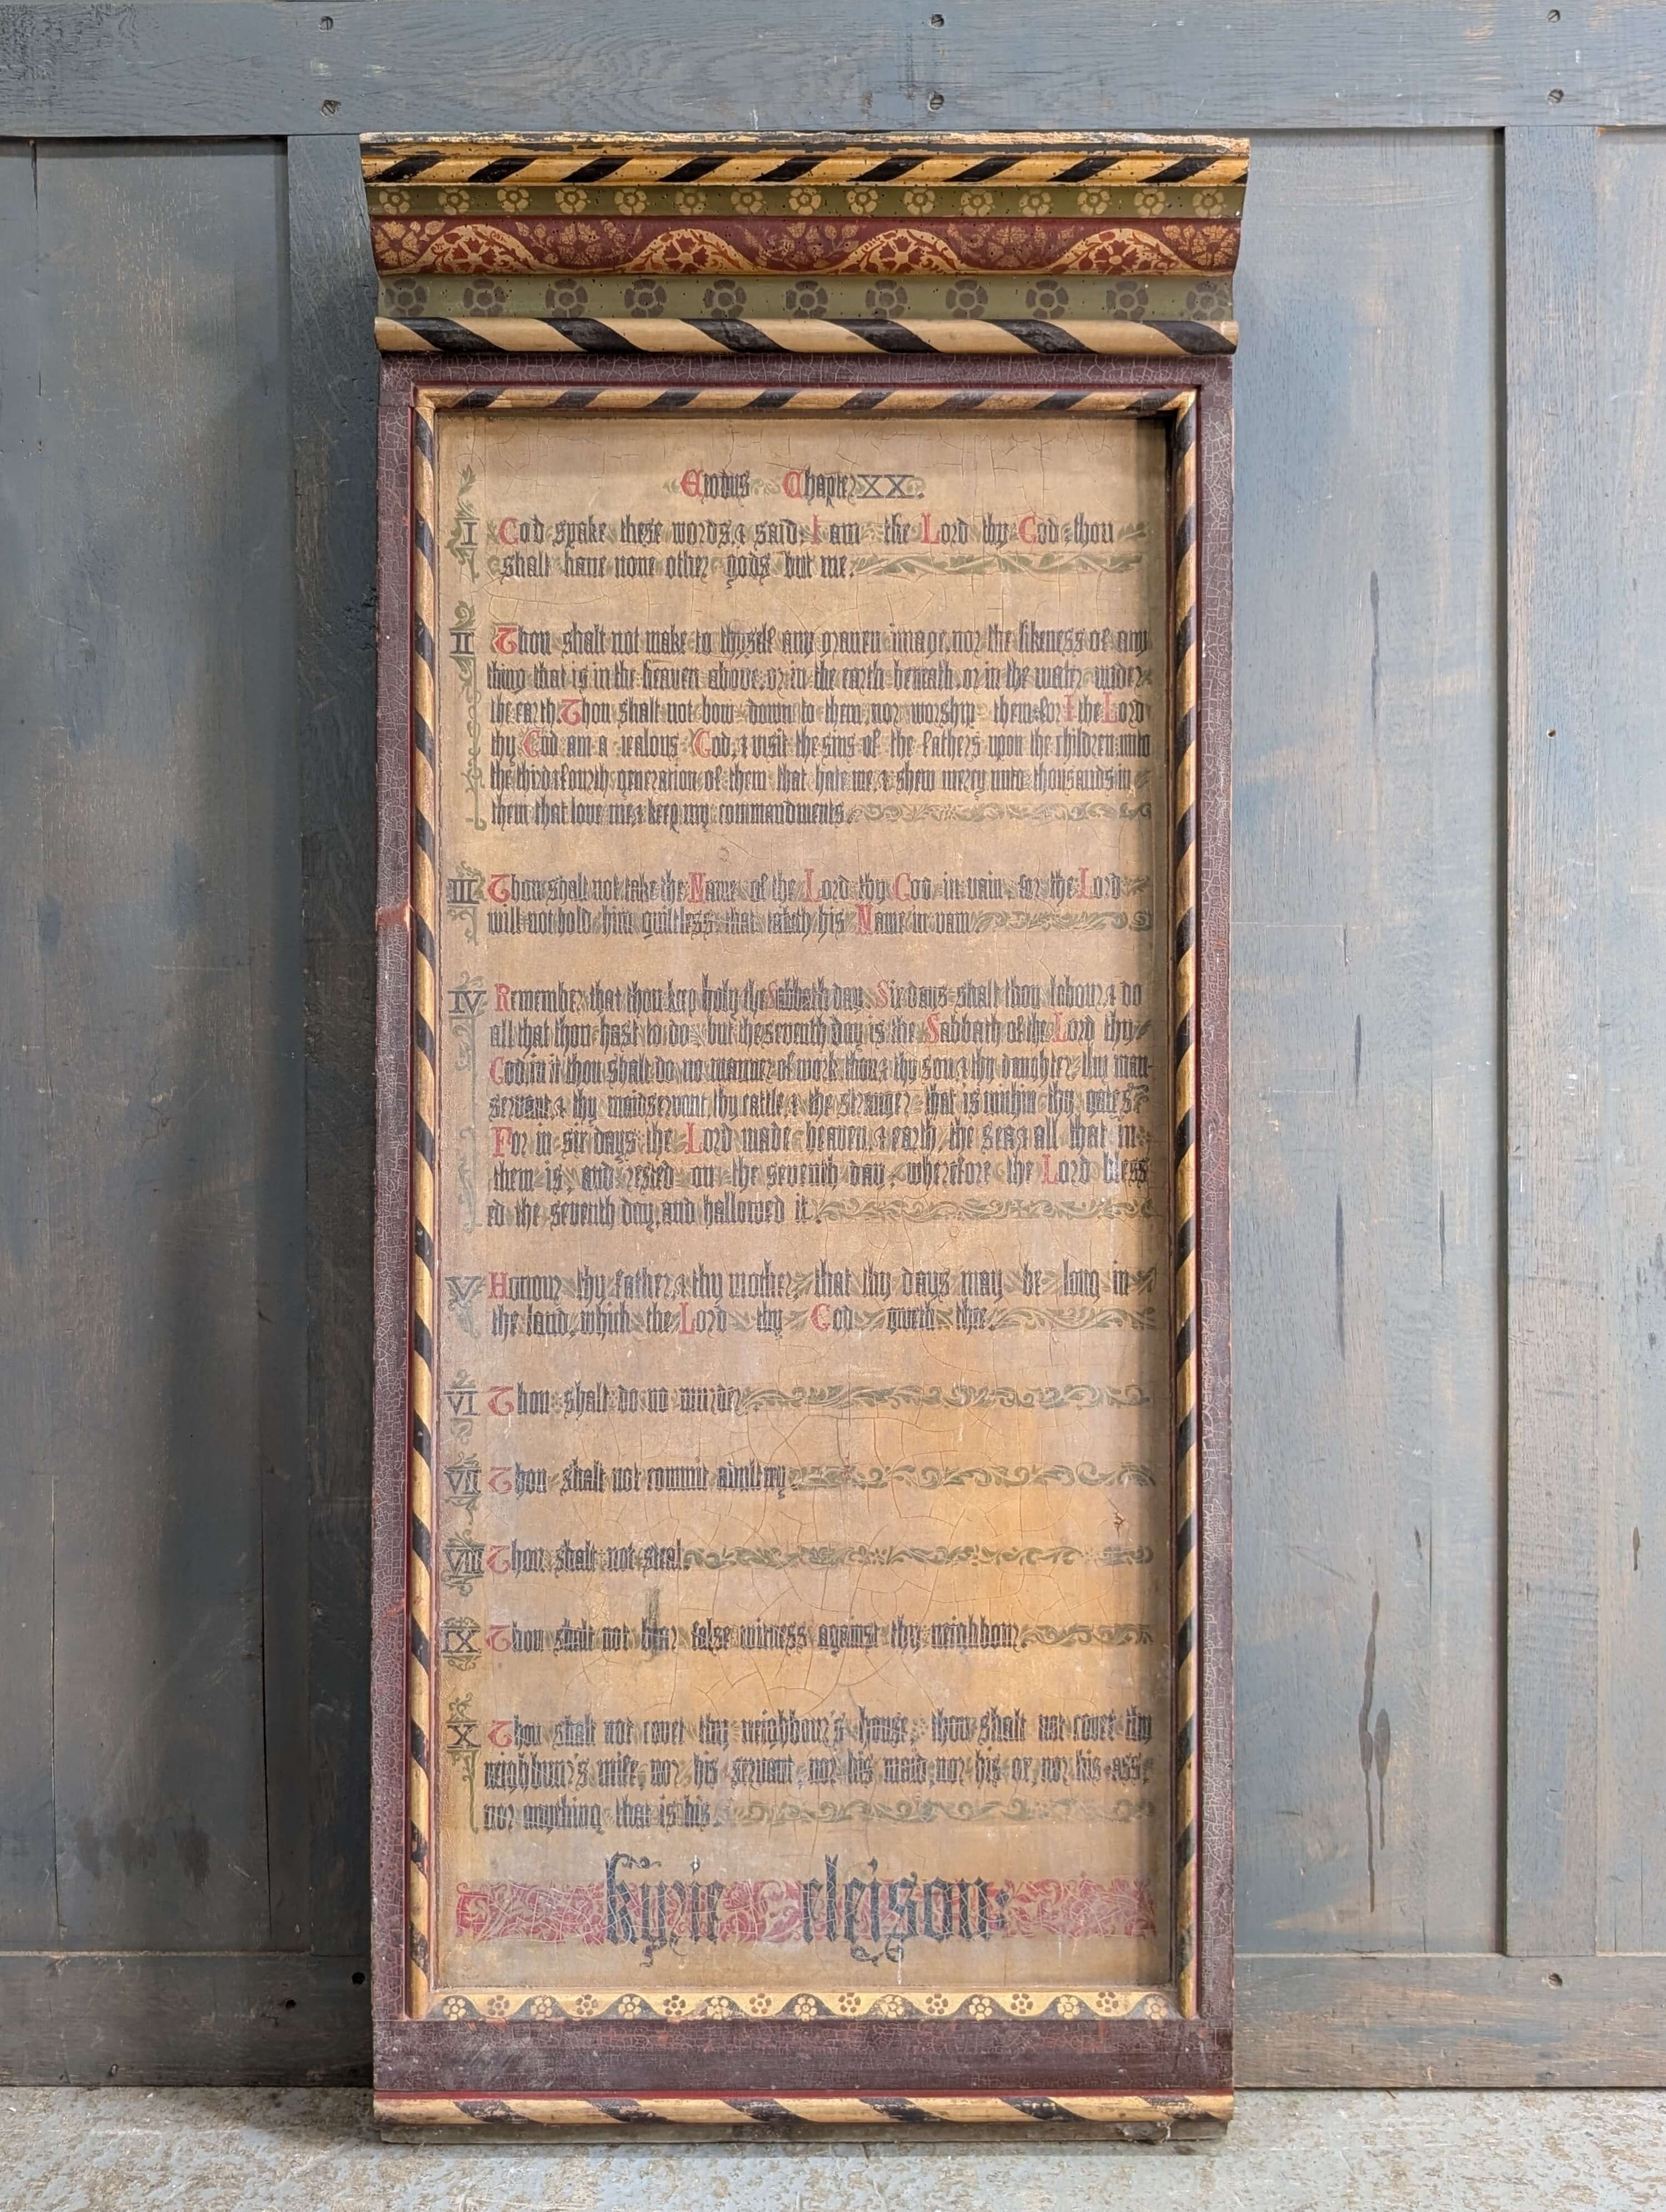 Exodus Chapter XX.
I God spake these words, & said, I am the Lord thy God: thou
shalt have none other gods but me.
II Thou shalt not make to thyself any graven image, nor the likeness of any
thing that is in the heaven above, or in the earth beneath, or in the water under
the earth. Thou shalt not bow down to them, nor worship them: for I the Lord
thy God am a jealous God, & visit the sins of the fathers upon the children unto
the third & fourth generation of them that hate me, & shew mercy unto thousands in
them that love me, & keep my commandments.
III Thou shalt not take the Name of the Lord thy God in vain, for the Lord
will not hold him guiltless, that taketh his Name in vain
IV Remember that thou keep holy the Sabbath day. Six days shalt thou labour & do
all that thou hast to do, but the seventh day is the Sabbath of the Lord thy
God, in it thou shalt do no manner of work, thou & thy son & thy daughter, thy man-
servant, & thy maidservant, thy cattle, & the stranger that is within thy gates
For in six days the Lord made heaven, & earth, the sea & all that in
them is, and rested on the seventh day, wherefore the Lord bless
ed the seventh day, and hallowed it.
V Honour thy father, & thy mother, that thy days may be long in
the land, which the Lord thy God giveth thee.
VI Thou shalt do no murder
VII Thou shalt not commit adultery.
VIII Thou shalt not steal.
IX Thou shalt not bear false witness against thy neighbour.
X Thou shalt not covet thy neighbour's house, thou shalt not covet thy
neighbour's wife, nor his servant, nor his maid, nor his ox, nor his ass,
nor anything that is his.
kyrie eleison: